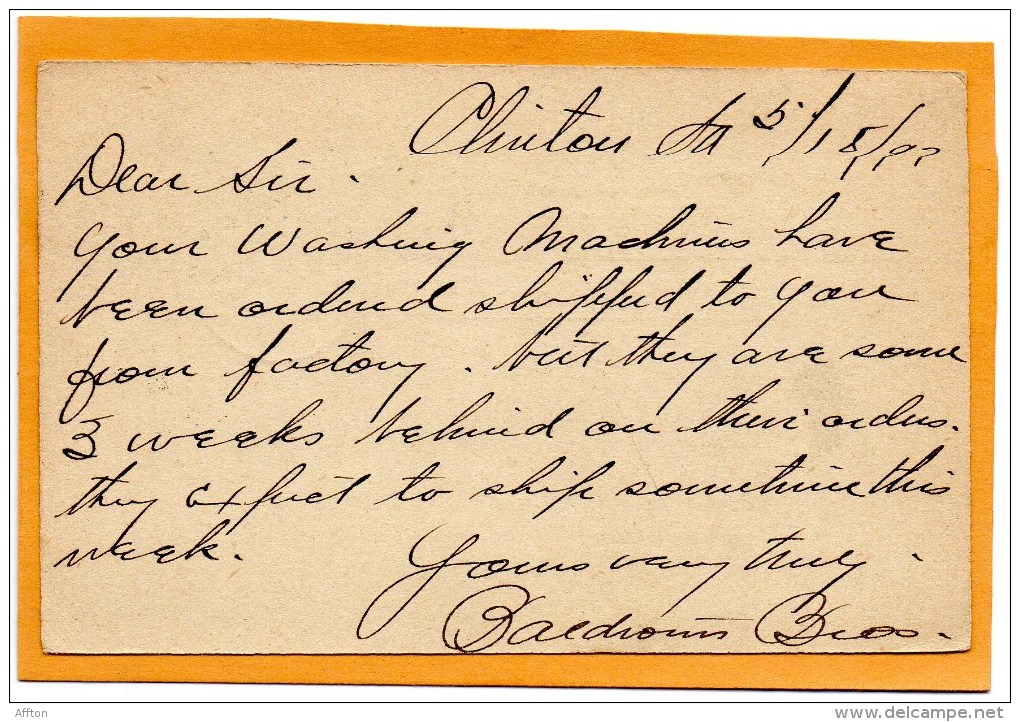 Clinton 5/18/9
Dear Sir.
your Washing Machines have
been ordered shipped to you
from factory. but they are some
3 weeks behind on their orders.
they expect to ship sometime this
week.
Yours very truly.
Baldwin Bros.
Affton
www.delcampe.net